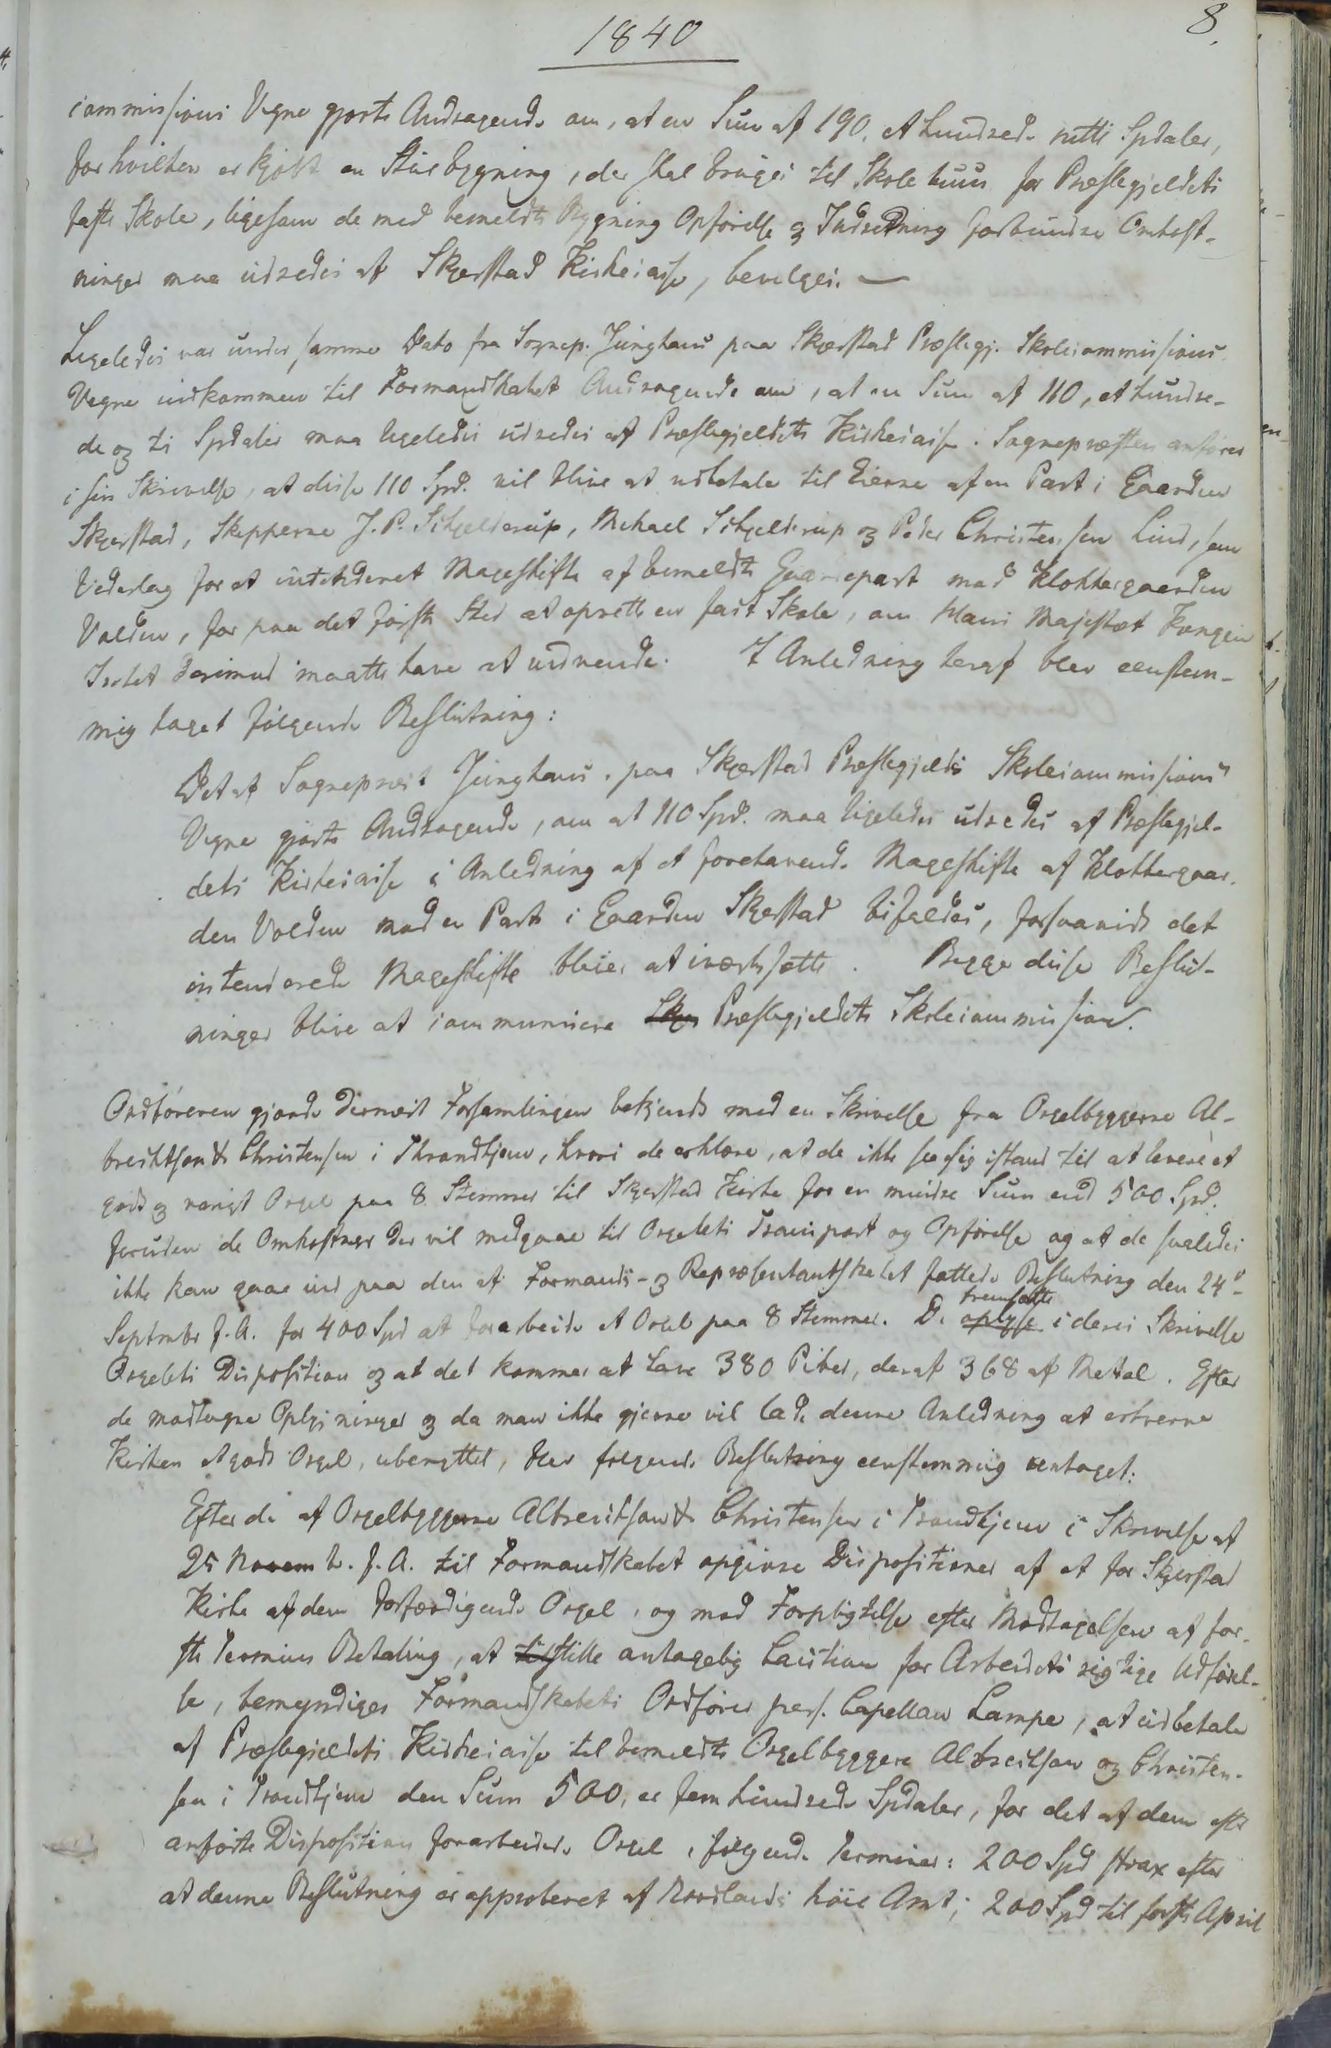 1840
8.
commissions Vegne gjorte Andragende om, at en Sum af 190, et hundrede nitti Spdaler,
for hvilken er kjøbt en Stuebygning, der skal bruges til Skolehuus for Præstegjeldets
faste Skole, ligesom de med bemeldte Bygnings Opførelse og Indredning forbundne Omkost-
ninger maa udredes af Skjerstad Kirkecasse, bevilges. —
Ligeledes var under samme Dato fra Sognep. Junghans paa Skjerstad Præstegj. Skolecommissions
Vegne indkommen til Formandskabet Andragende om, at en Sum af 110, et hundre-
de og ti Spdaler maa ligeledes udredes af Præstegjeldets Kirkecasse. Sognepresten anfører
i sin Skrivelse, at disse 110 Spd. vil blive at udbetale til Eierne af en Part i Gaarden
Skjerstad, Skipperne J. P. Schjelderup, Michael Schjelderup og Peder Christensen Lund, som
Vederlag for et intenderet Mageskifte af bemeldte Gaardepart med Klokkergaarden
Volden, for paa det første Sted at oprette en fast Skole, om Hans Majestæt Kongen
Intet derimod maatte have at indvende. I Anledning heraf blev eenstem-
mig taget følgende Beslutning:
Det af Sognepræst Junghans paa Skjerstad Præstegjelds Skolecommissions
Vegne gjorte Andragende, om at 110 Spd. maa ligeledes udredes af Præstegjel-
dets Kirkecasse i Anledning af et forehavende Mageskifte af Klokkergaar-
den Volden med en Part i Gaarden Skjerstad bifaldes, forsaavidt det
intenderede Mageskifte bliver at iværksætte. Begge disse Beslut-
ninger blive at communicere Skjer Præstegjeldets Skolecommission.
Ordføreren gjorde dernæst Forsamlingen bekjendt med en Skrivelse fra Orgelbyggerne Al-
brechtson & Christensen i Throndhjem, hvori de erklære, at de ikke see sig istand til at levere et
godt og varigt Orgel paa 8 Stemmer til Skjerstad Kirke for en mindre Sum end 500 Spd.
foruden de Omkostninger der vil medgaae til Orgelets Transport og Opførelse og at de saaledes
ikke kan gaae ind paa den af Formands- og Repræsentantskabet fattede Beslutning den 24de
Septembr f. A. for 400 Spd at forarbeide et Orgel paa 8 Stemmer. De oplyse fremsætte i deres Skrivelse
Orgelets Disposition og at det kommer at have 380 Piber, deraf 368 af Metal. Efter
de modtagne Oplysninger og da man ikke gjerne vil lade denne Anledning at erhverve
Kirken et godt Orgel, ubenyttet, blev følgende Beslutning eenstemmig antaget:
Efter de af Orgelbyggerne Albrechtson & Christensen i Trondhjem i Skrivelse af
25 Novem b. f. A. til Formandskabet opgivne Dispositioner af et for Skjerstad
Kirke af dem forfærdigende Orgel, og med Forpligtelse efter Modtagelsen af før-
ste Termins Betaling, at tilstille antagelig Caution for Arbeidets rigtige Udførel-
se, bemyndiges Formandskabets Ordfører pers. Capellan Lampe, at udbetale
af Præstegjeldets Kirkecasse til bemeldte Orgelbyggere Albrechtson og Christen-
sen i Trondhjem den Sum 500, er fem hundrede Spdaler, for det af dem efter
anførte Disposition forarbeidede Orgel, i følgende Terminer: 200 Spd strax efter
at denne Beslutning er approberet af Nordlands høie Amt; 200 Spd til første April